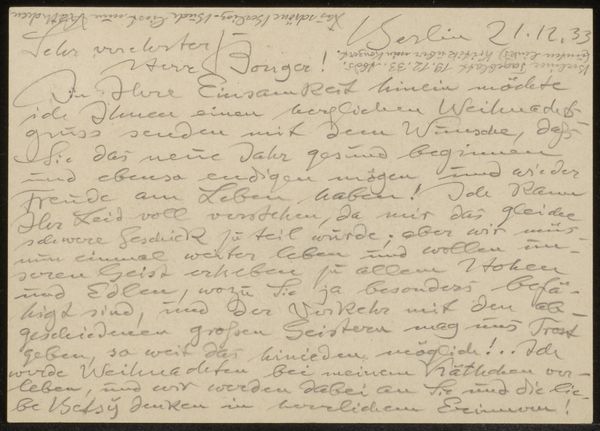 Berlin 21.12.33
Sehr verehrter
Herr Bonger!
In Ihre Einsamkeit hinein möchte
ich Ihnen einen herzlichen Weihnachts-
gruss senden mit dem Wunsche, daß
Sie das neue Jahr gesund beginnen
und ebenso endigen mögen und wieder
Freude am Leben haben! Ich kann
Ihr Leid voll verstehen, da mir das gleiche
schwere Geschick zu teil wurde; aber wir müs-
nun einmal weiter leben und wollen un-
seren Geist erheben zu allem Hohen
und Edlen, wozu Sie ja besonders befä-
higt sind, und der Verkehr mit den ab-
geschiedenen grossen Geistern mag uns Trost
geben, so weit das hinieden möglich!.. Ich
werde Weihnachten bei meinem Käthchen ver-
leben und wir werden dabei an Sie und die lie-
be Betsy denken in herzlichem Erinnern!
Berliner Tageblatt 19.12.33
Kritik über mein Konzert